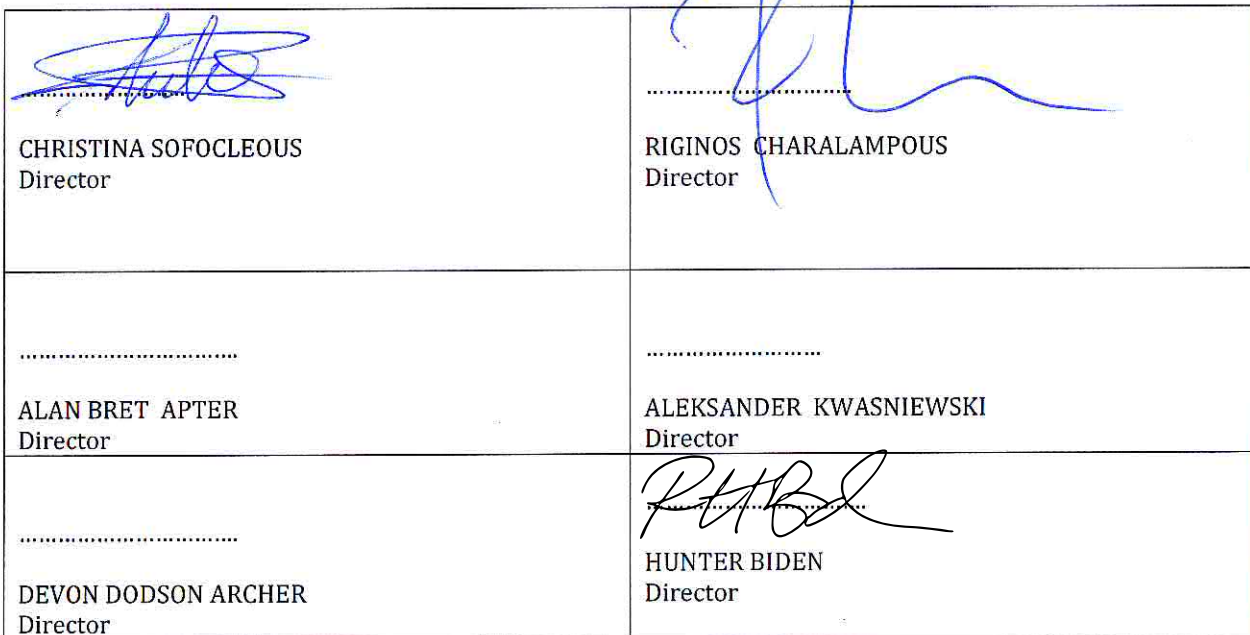 CHRISTINA SOFOCLEOUS
Director
RIGINOS CHARALAMPOUS
Director
ALAN BRET APTER
Director
ALEKSANDER KWASNIEWSKI
Director
DEVON DODSON ARCHER
Director
HUNTER BIDEN
Director